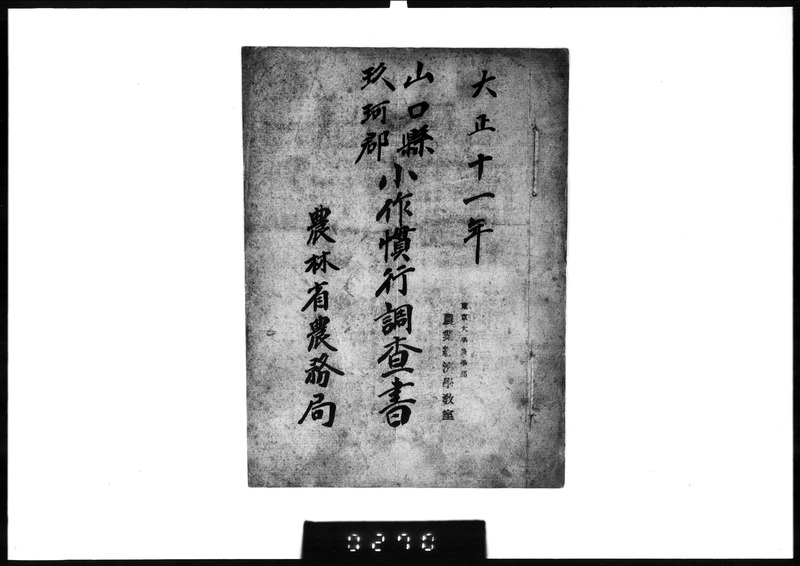 大正十一年
山口縣
玖珂郡
小作慣行調査書
農林省農務局
東京大學農學部
農業經濟學教室
0270